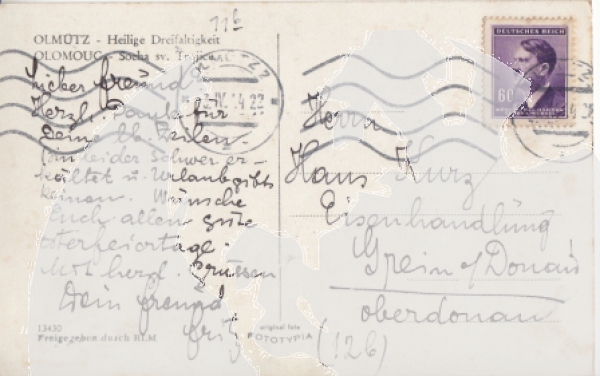 11b
OLMÜTZ - Heilige Dreifaltigkeit
OLOMOUC - Socha sv. Trojice
Lieber Freund!
Herzl. Dank für
Deine lb. Zeilen.
Bin leider schwer er-
kältet u. Urlaub gibts
keinen. Wünsche
Euch allen gute
Osterfeiertage.
Mit herzl. Grüssen
Dein Freund
Fritz
13430
Freigegeben durch RLM
original foto
FOTOTYPIA
DEUTSCHES REICH
60
Herrn
Hans Kurz
Eisenhandlung
Grein a/Donau
Oberdonau
(12b)